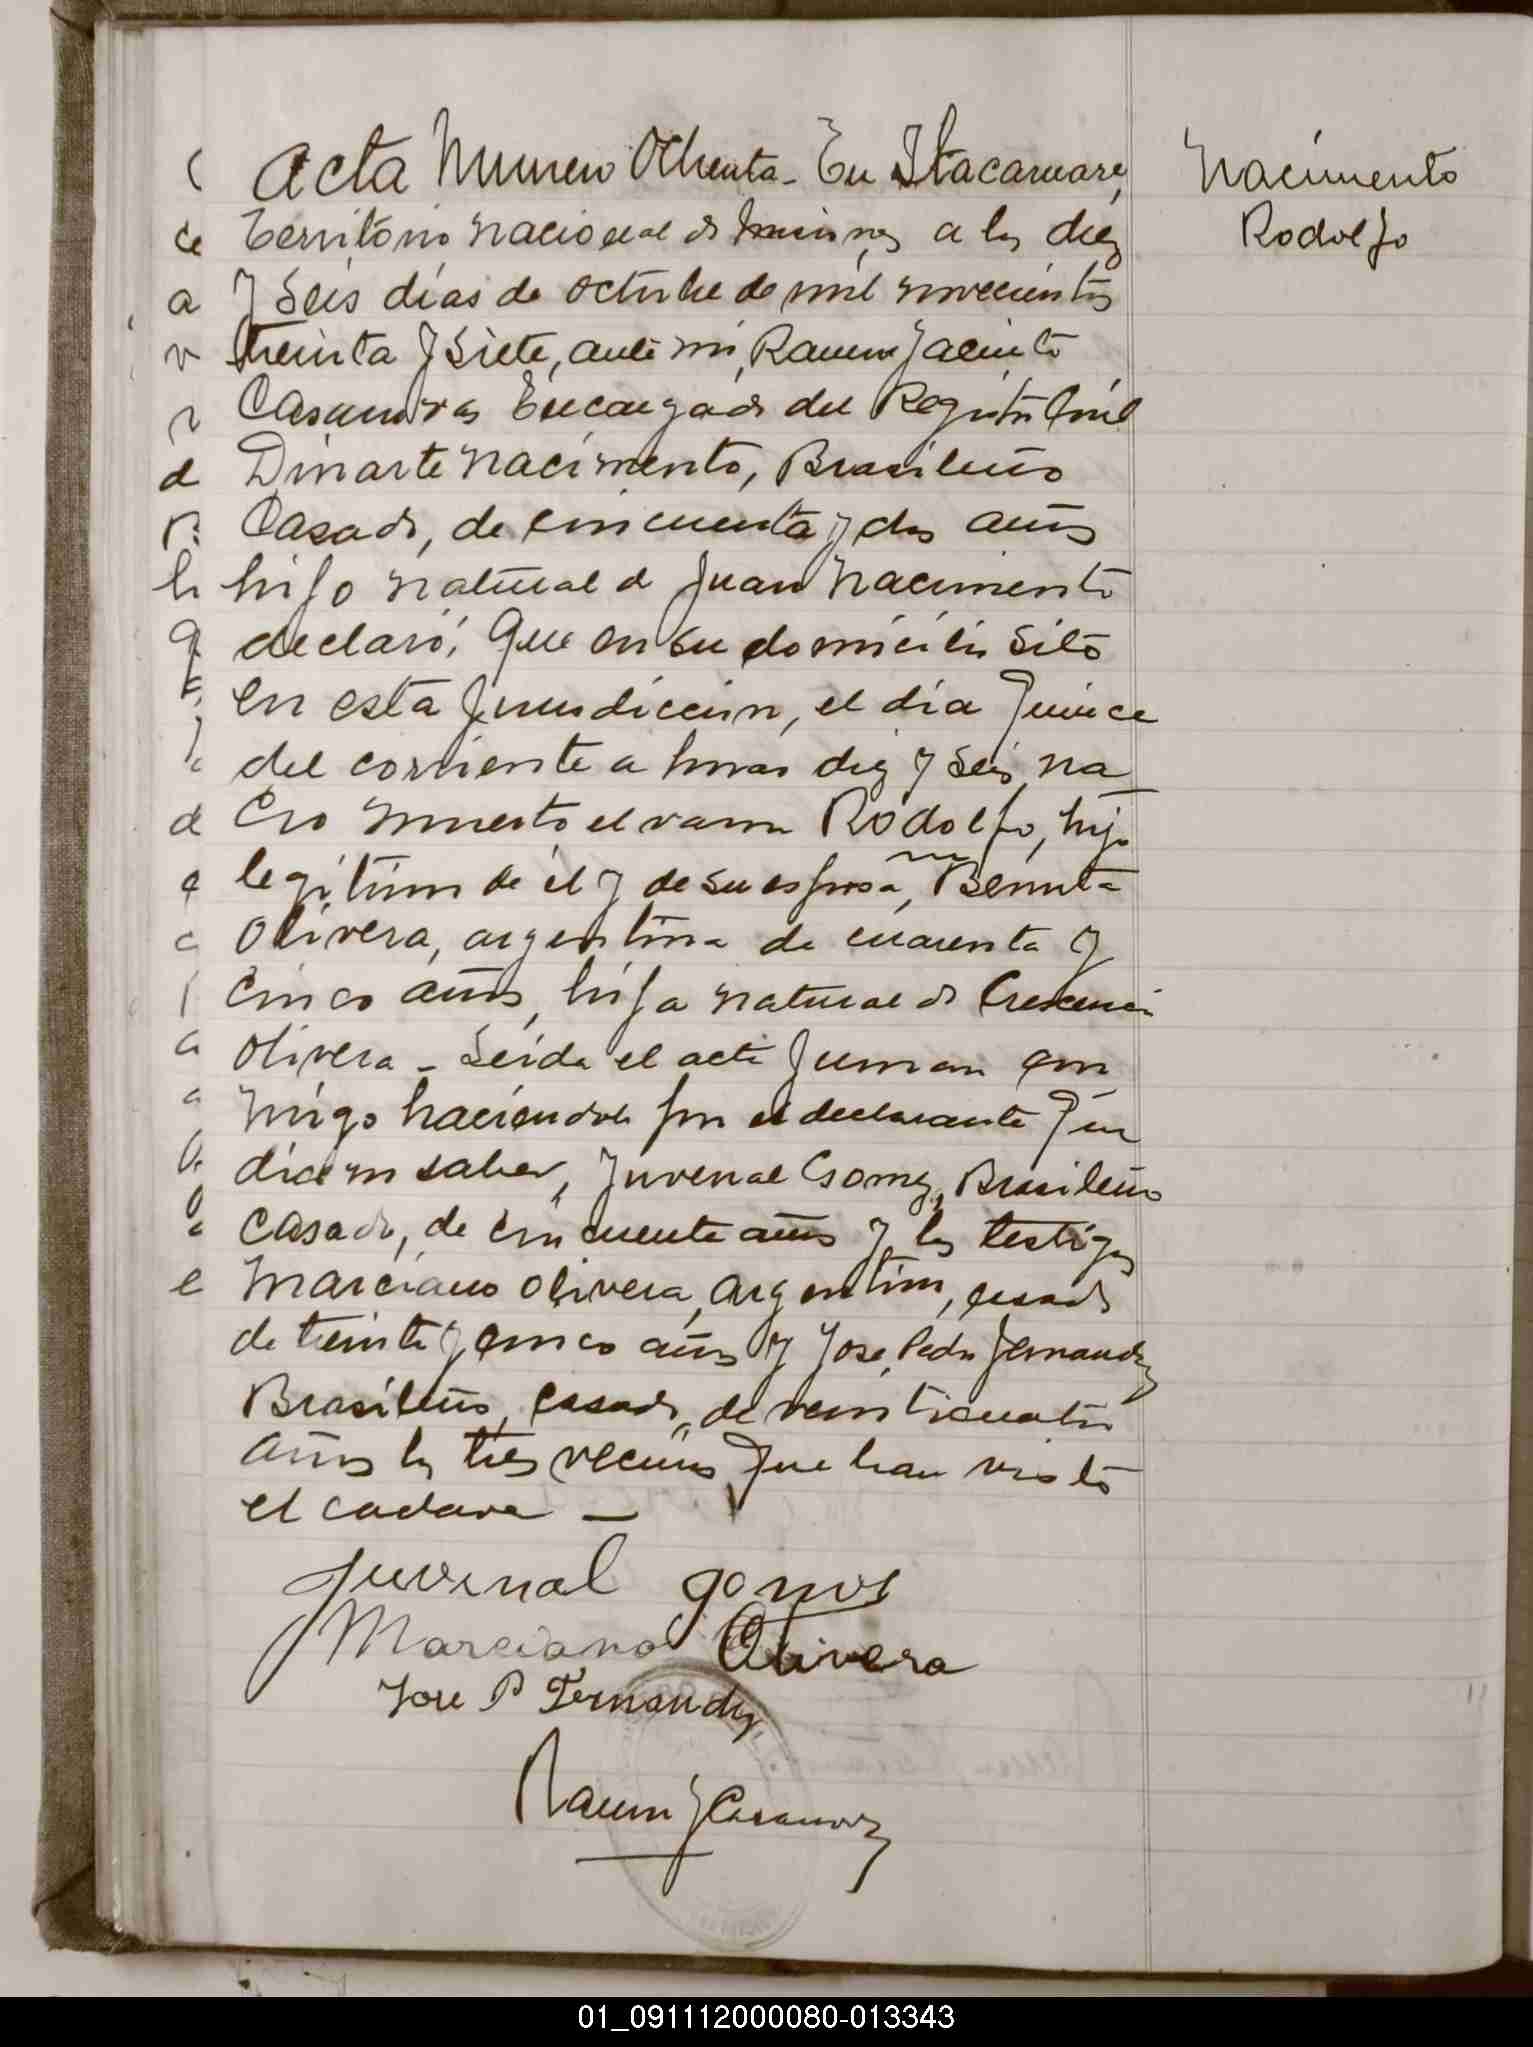 Acta Numero Ochenta - En Itacaruare,
Territorio nacional de Misiones a los diez
y seis días de octubre de mil novecientos
treinta y siete, ante mi, Ramon Jacinto
Casanovas Encargado del Registro Civil
Dinarte Nacimento, Brasileño
Casado, de cincuenta y dos años
hijo natural de Juan Nacimento
declaró; Que en su domicilio sito
en esta jurisdiccion, el día quince
del corriente a horas diez y seis na
cio muerto el varon Rodolfo, hijo
legítimo de él y de su esposa, Benita
Olivera, argentina de cuarenta y
cinco años, hija natural de Crescencia
Olivera - Leida el acta firman con
migo haciendolo por el declarante que
dice no saber, Juvenal Gomez, Brasileño
casado, de cincuenta años y los testigos
Marciano Olivera, argentino, casado
de treinta y cinco años y José Pedro Fernandez
Brasileño, casado, de veinticuatro
años los tres vecinos que han visto
el cadaver —
Juvenal gomes
Marciano Olivera
Jose P Fernandez
Ramon J Casanovas
Nacimento
Rodolfo
01_091112000080-013343